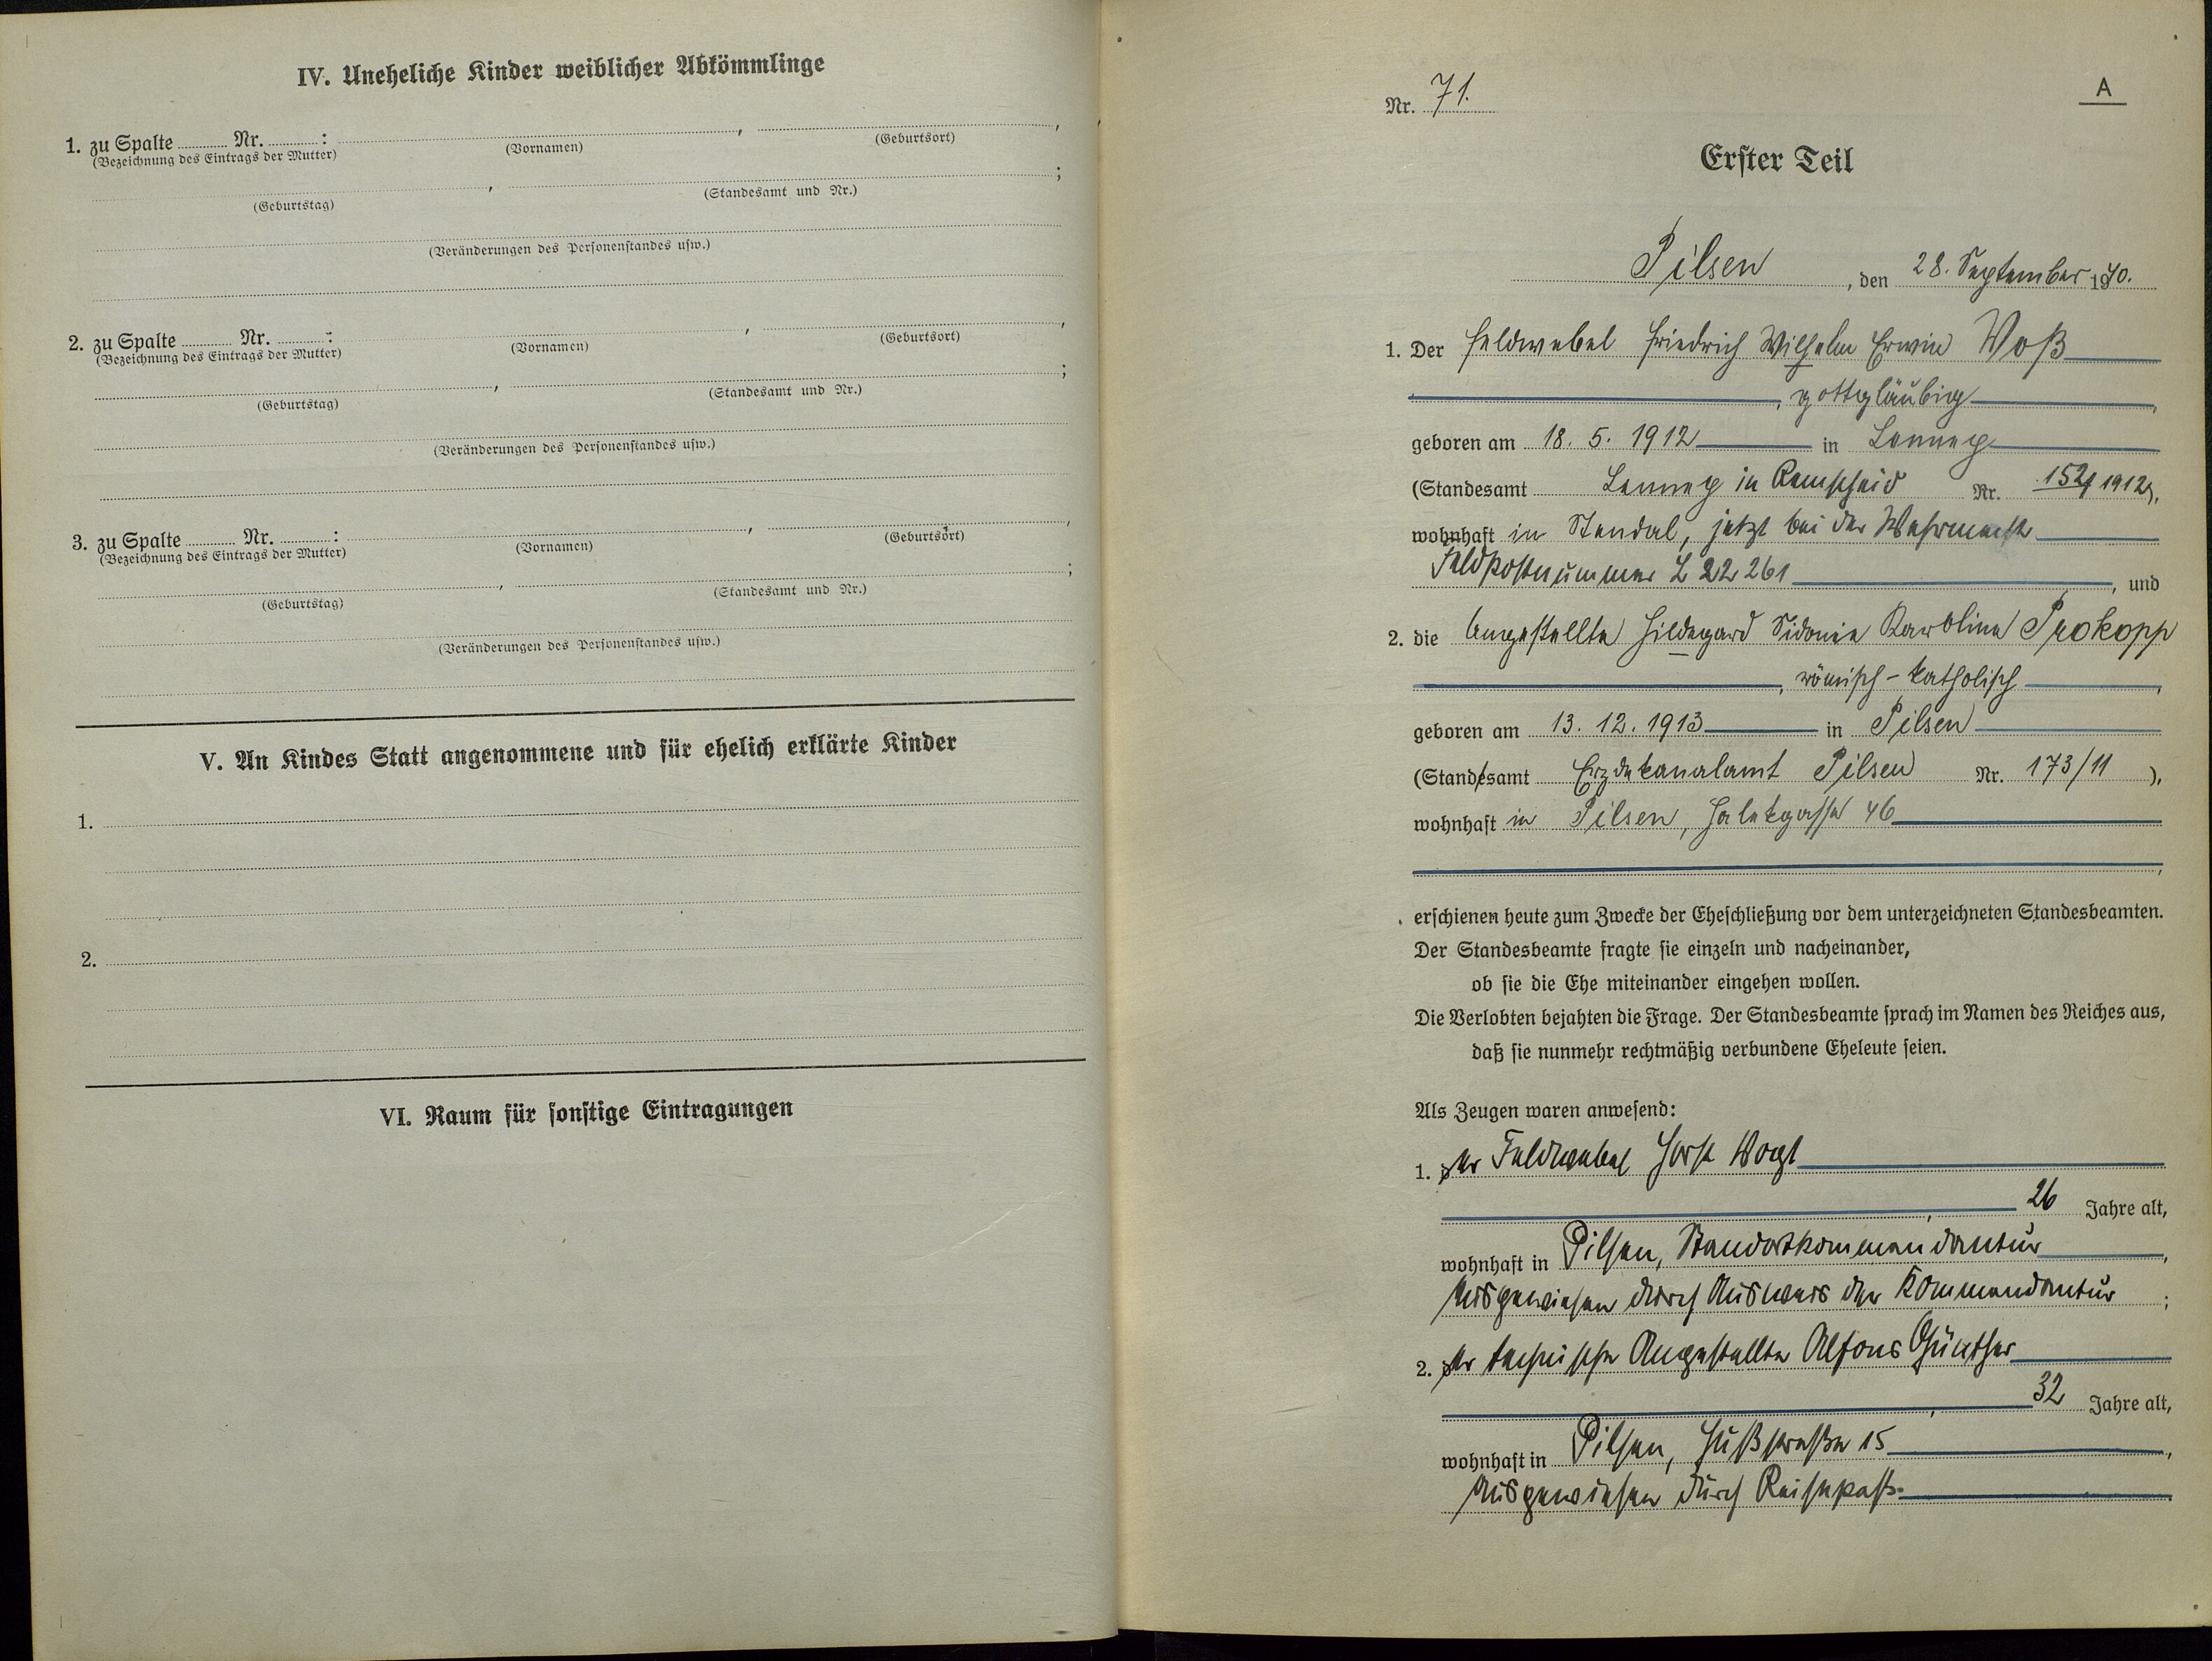 IV. Uneheliche Kinder weiblicher Abkömmlinge
1. zu Spalte ............ Nr. ............ : , ,
(Bezeichnung des Eintrags der Mutter) (Vornamen) (Geburtsort)
, ;
(Geburtstag) (Standesamt und Nr.)
(Veränderungen des Personenstandes usw.)
2. zu Spalte ............ Nr. ............ : , ,
(Bezeichnung des Eintrags der Mutter) (Vornamen) (Geburtsort)
, ;
(Geburtstag) (Standesamt und Nr.)
(Veränderungen des Personenstandes usw.)
3. zu Spalte ............ Nr. ............ : , ,
(Bezeichnung des Eintrags der Mutter) (Vornamen) (Geburtsort)
, ;
(Geburtstag) (Standesamt und Nr.)
(Veränderungen des Personenstandes usw.)
V. An Kindes Statt angenommene und für ehelich erklärte Kinder
1.
2.
VI. Raum für sonstige Eintragungen
A
Nr. 71.
Erster Teil
Pilsen, den 28. September 1940.
1. Der Feldwebel Friedrich Wilhelm Erwin Voß
, gottgläubig,
geboren am 18. 5. 1912 in Lennep
(Standesamt Lennep in Remscheid Nr. 152/1912),
wohnhaft in Stendal, jetzt bei der Wehrmacht
Feldpostnummer L 22 261, und
2. die Angestellte Hildegard Sidonie Karoline Prokopp
, römisch-katholisch,
geboren am 13. 12. 1913 in Pilsen
(Standesamt Erzdekanalamt Pilsen Nr. 173/11),
wohnhaft in Pilsen, Halekgasse 46
,
erschienen heute zum Zwecke der Eheschließung vor dem unterzeichneten Standesbeamten.
Der Standesbeamte fragte sie einzeln und nacheinander,
ob sie die Ehe miteinander eingehen wollen.
Die Verlobten bejahten die Frage. Der Standesbeamte sprach im Namen des Reiches aus,
daß sie nunmehr rechtmäßig verbundene Eheleute seien.
Als Zeugen waren anwesend:
1. der Feldwebel Horst Vogt
, 26 Jahre alt,
wohnhaft in Pilsen, Standortkommandantur,
Ausgewiesen durch Ausweis der Kommandantur;
2. der technische Angestellte Alfons Günther
, 32 Jahre alt,
wohnhaft in Pilsen, Hußstraße 15,
Ausgewiesen durch Reisepass.